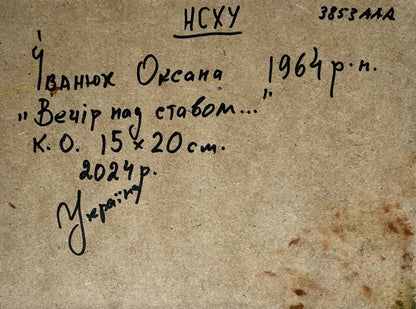 НСХУ 3853ААА
Іванюк Оксана 1964 р.н.
„Вечір над ставом..."
К.О. 15 × 20 см.
2024р.
Україна